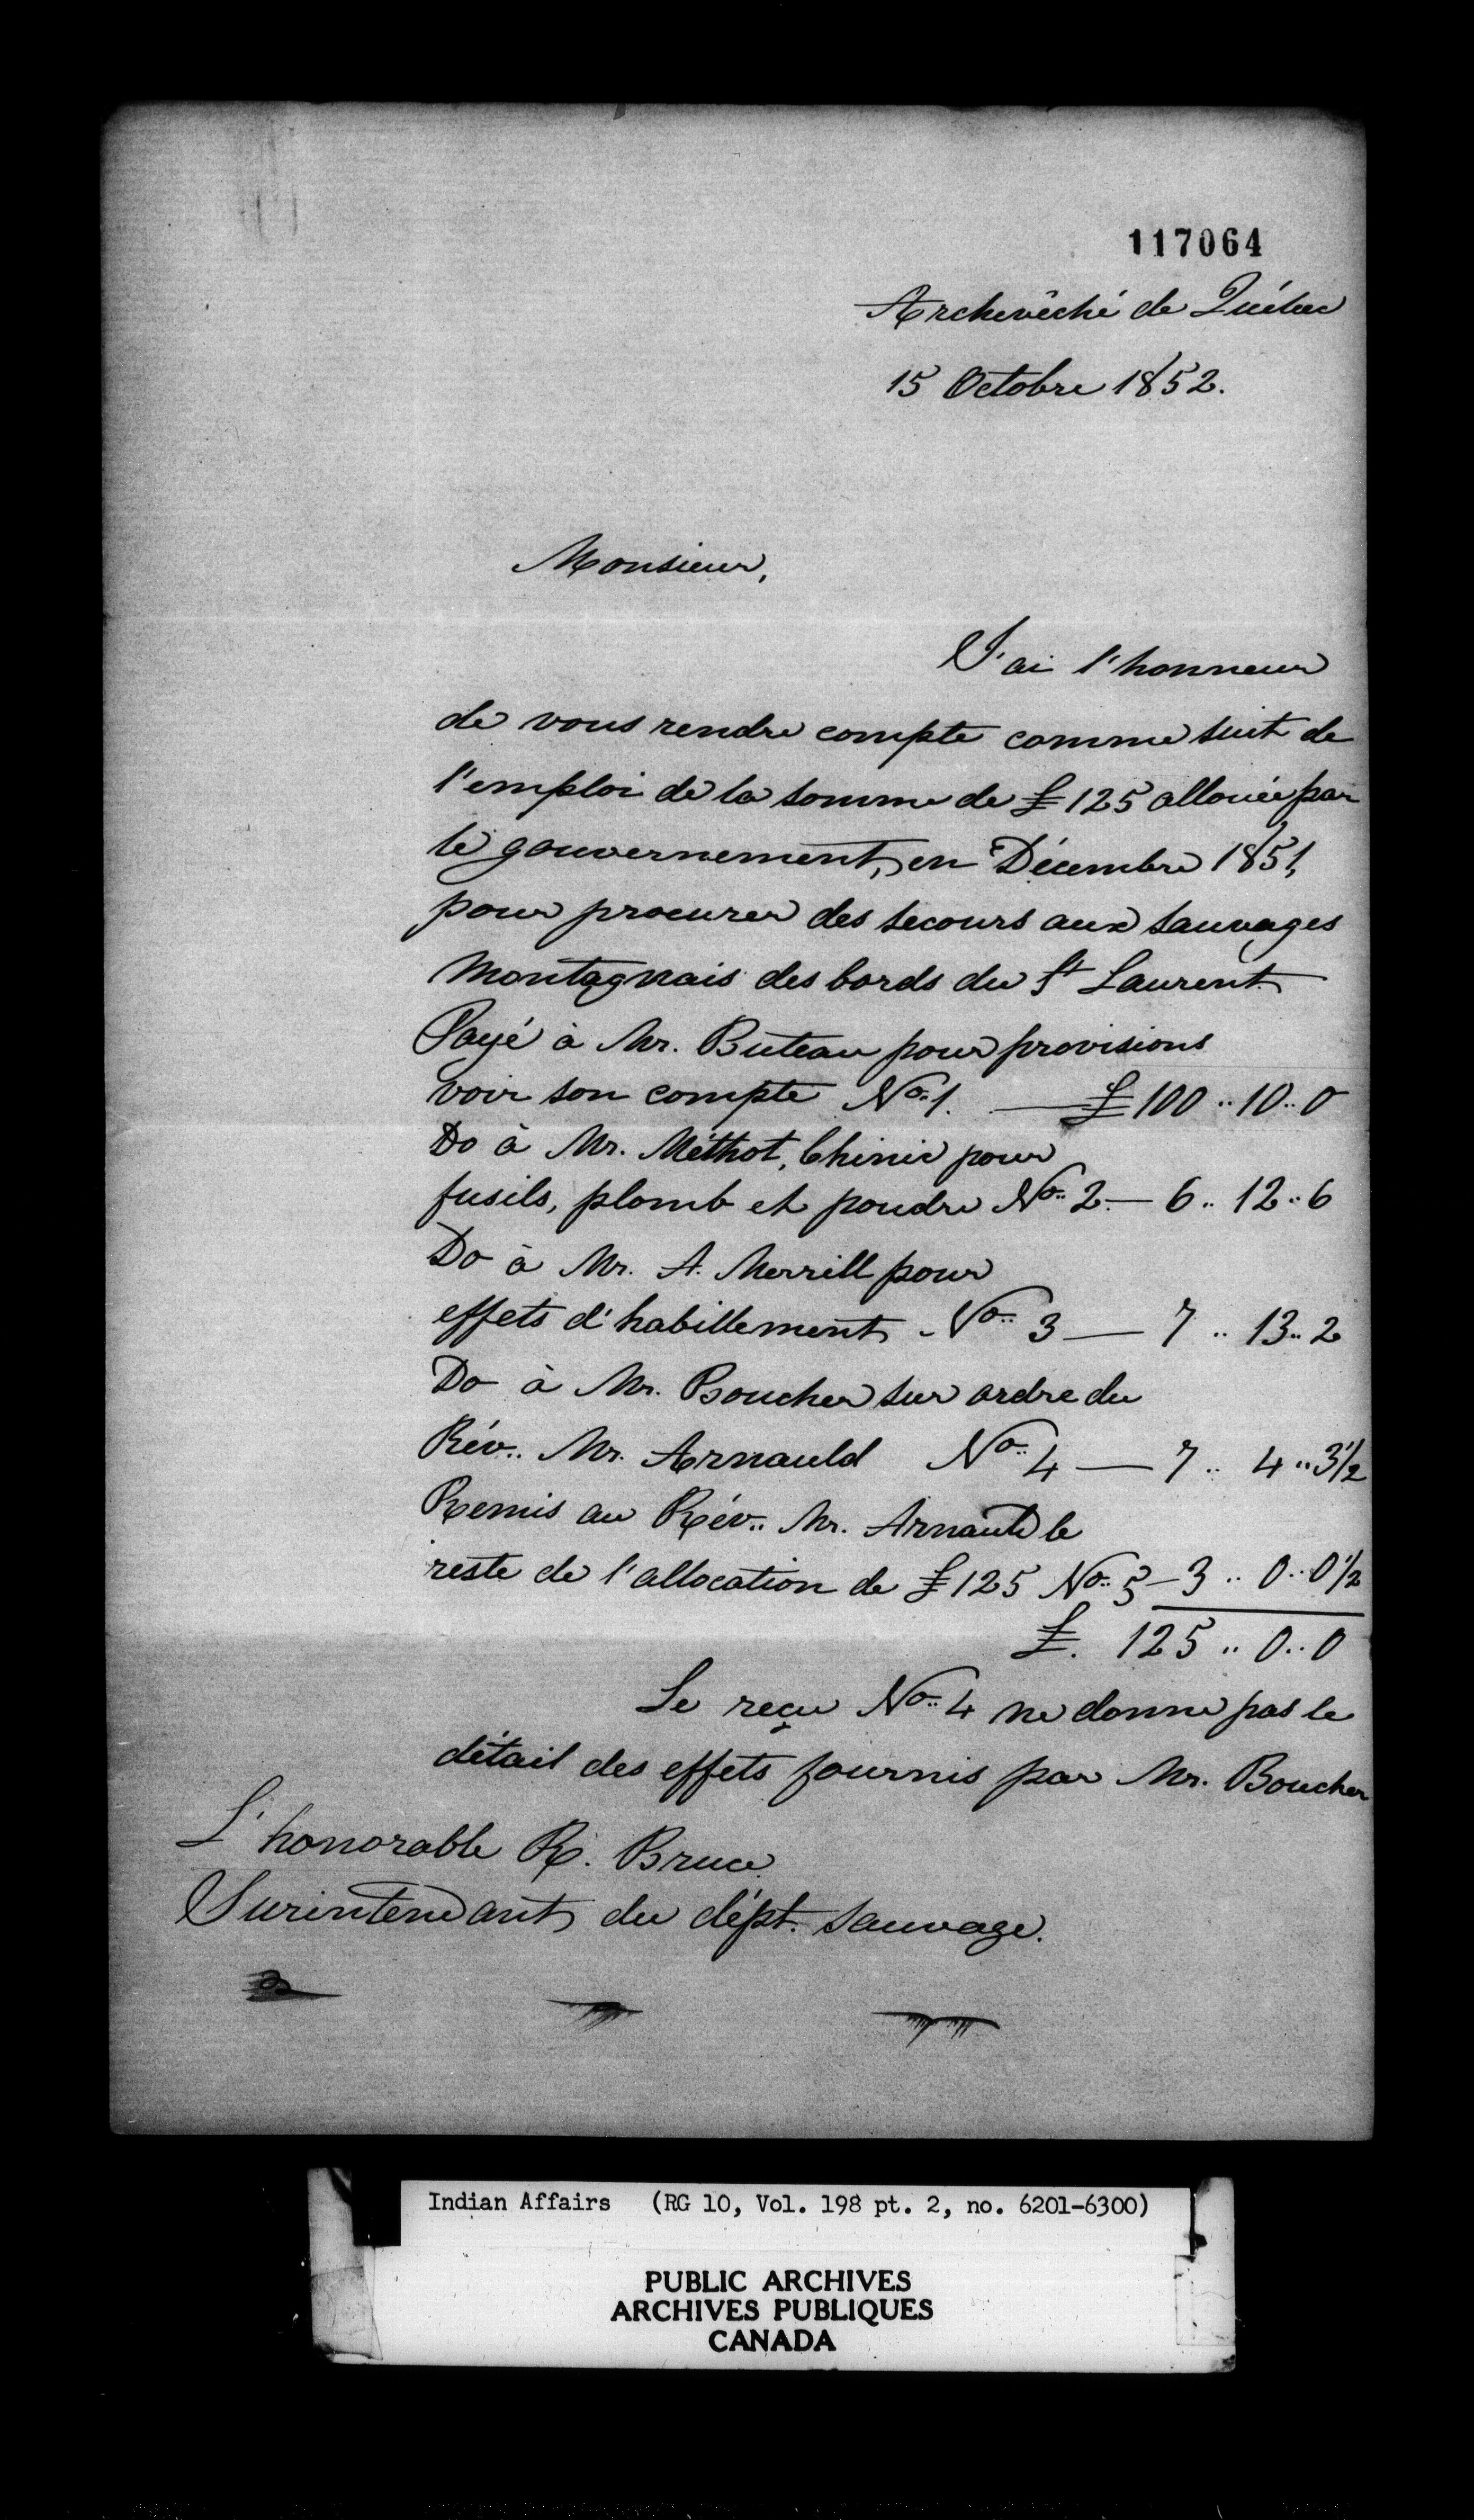 117064
Archevêché de Québec
15 Octobre 1852.
Monsieur,
J'ai l'honneur
de vous rendre compte comme suit de
l'emploi de la somme de £125 allouée par
le gouvernement, en Décembre 1851,
pour procurer des secours aux sauvages
Montagnais des bords du St Laurent
Payé à Mr. Buteau pour provisions
voir son compte No. 1. — £100 .. 10 .. 0
Do à Mr. Méthot, Chinic pour
fusils, plomb et poudre No. 2 — 6 .. 12 .. 6
Do à Mr. A. Merrill pour
effets d'habillement No. 3 — 7 .. 13 .. 2
Do à Mr. Boucher sur ordre du
Rév. Mr. Arnauld No. 4 — 7 .. 4 .. 3 1/2
Remis au Rév. Mr. Arnauld le
reste de l'allocation de £125 No. 5 — 3 .. 0 .. 0 1/2
£. 125 .. 0 .. 0
Le reçu No. 4 ne donne pas le
détail des effets fournis par Mr. Boucher
L'honorable R. Bruce
Surintendant du dépt. sauvage.
Indian Affairs (RG 10, Vol. 198 pt. 2, no. 6201-6300)
PUBLIC ARCHIVES
ARCHIVES PUBLIQUES
CANADA